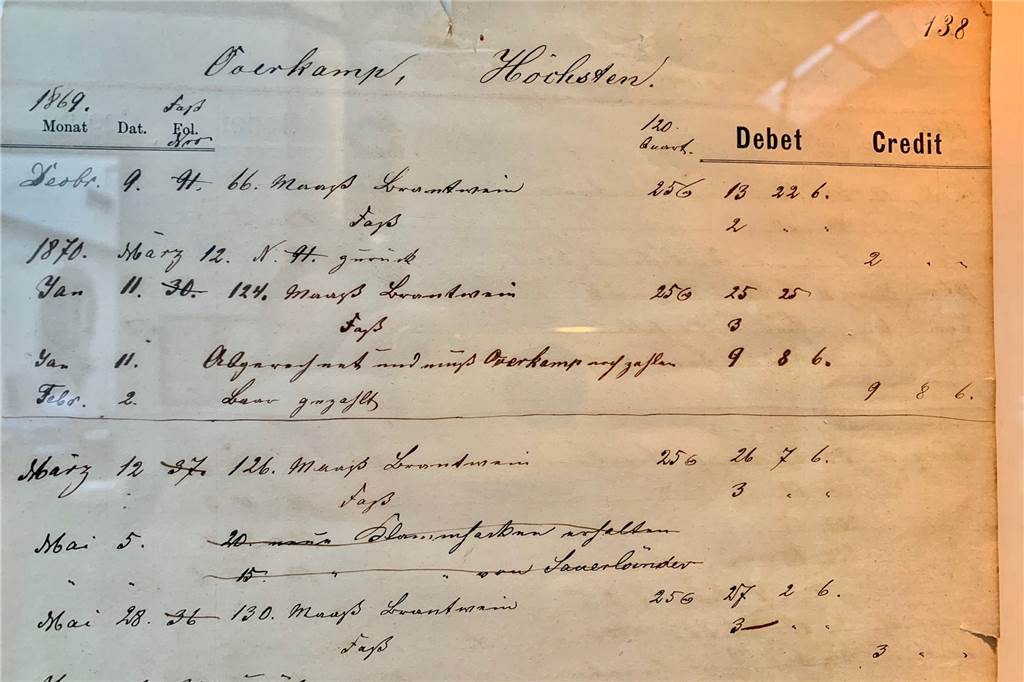 138
Overkamp, Höchsten.
1869. Faß 120.
Monat Dat. Fol. Nro Quart. Debet Credit
Decbr. 9. 91. 66. Maaß Brantwein 256 13 22 6.
Faß 2 " "
1870. März 12. N. 91 zurück 2 " "
Jan 11. 30. 124. Maaß Brantwein 256 25 25
Faß 3
Jan 11. Abgerechnet und muß Overkamp noch zahlen 9 8 6.
Febr. 2. Baar gezahlt 9 8 6.
März 12 37. 126. Maaß Brantwein 256 26 7 6.
Faß 3 " "
Mai 5. 20. neue erhalten
" " 15. " " von Sauerländer
Mai 28. 36 130. Maaß Brantwein 256 27 2 6.
3 " "
Faß 3 " "